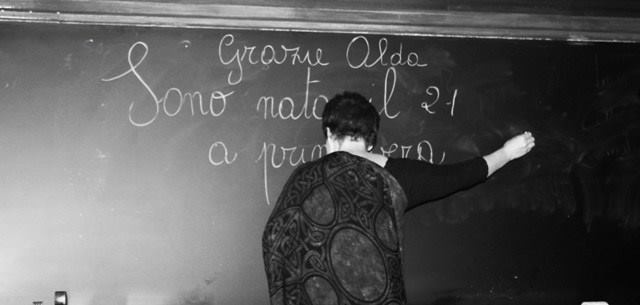 Grazie Alda
Sono nata il 21
a primavera